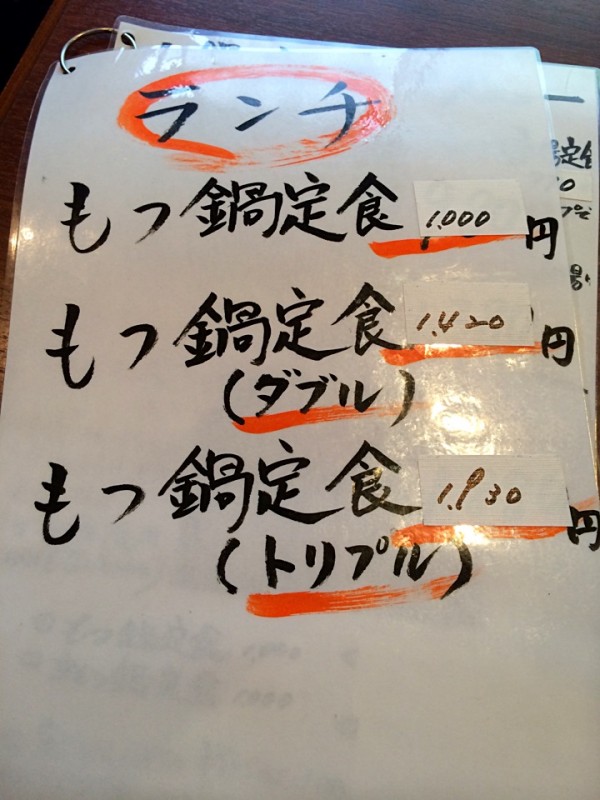 ランチ
もつ鍋定食 1.000円
もつ鍋定食 1.420円
(ダブル)
もつ鍋定食 1.930円
(トリプル)